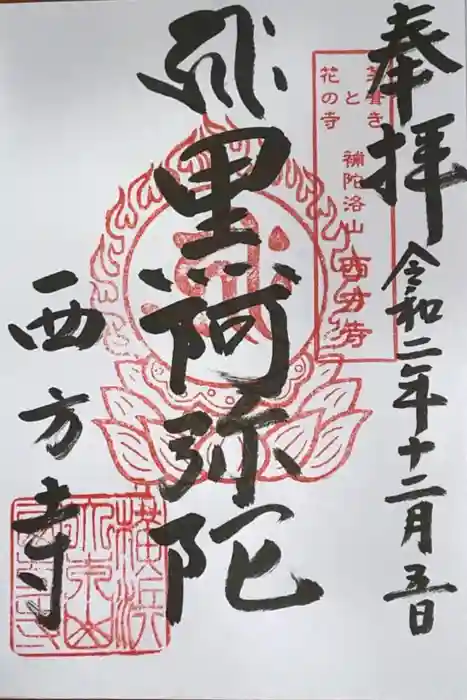 奉拝
令和二年十二月五日
茅葺き
と
花の寺
補陀洛山 西方寺
黒阿弥陀
西方寺
横浜